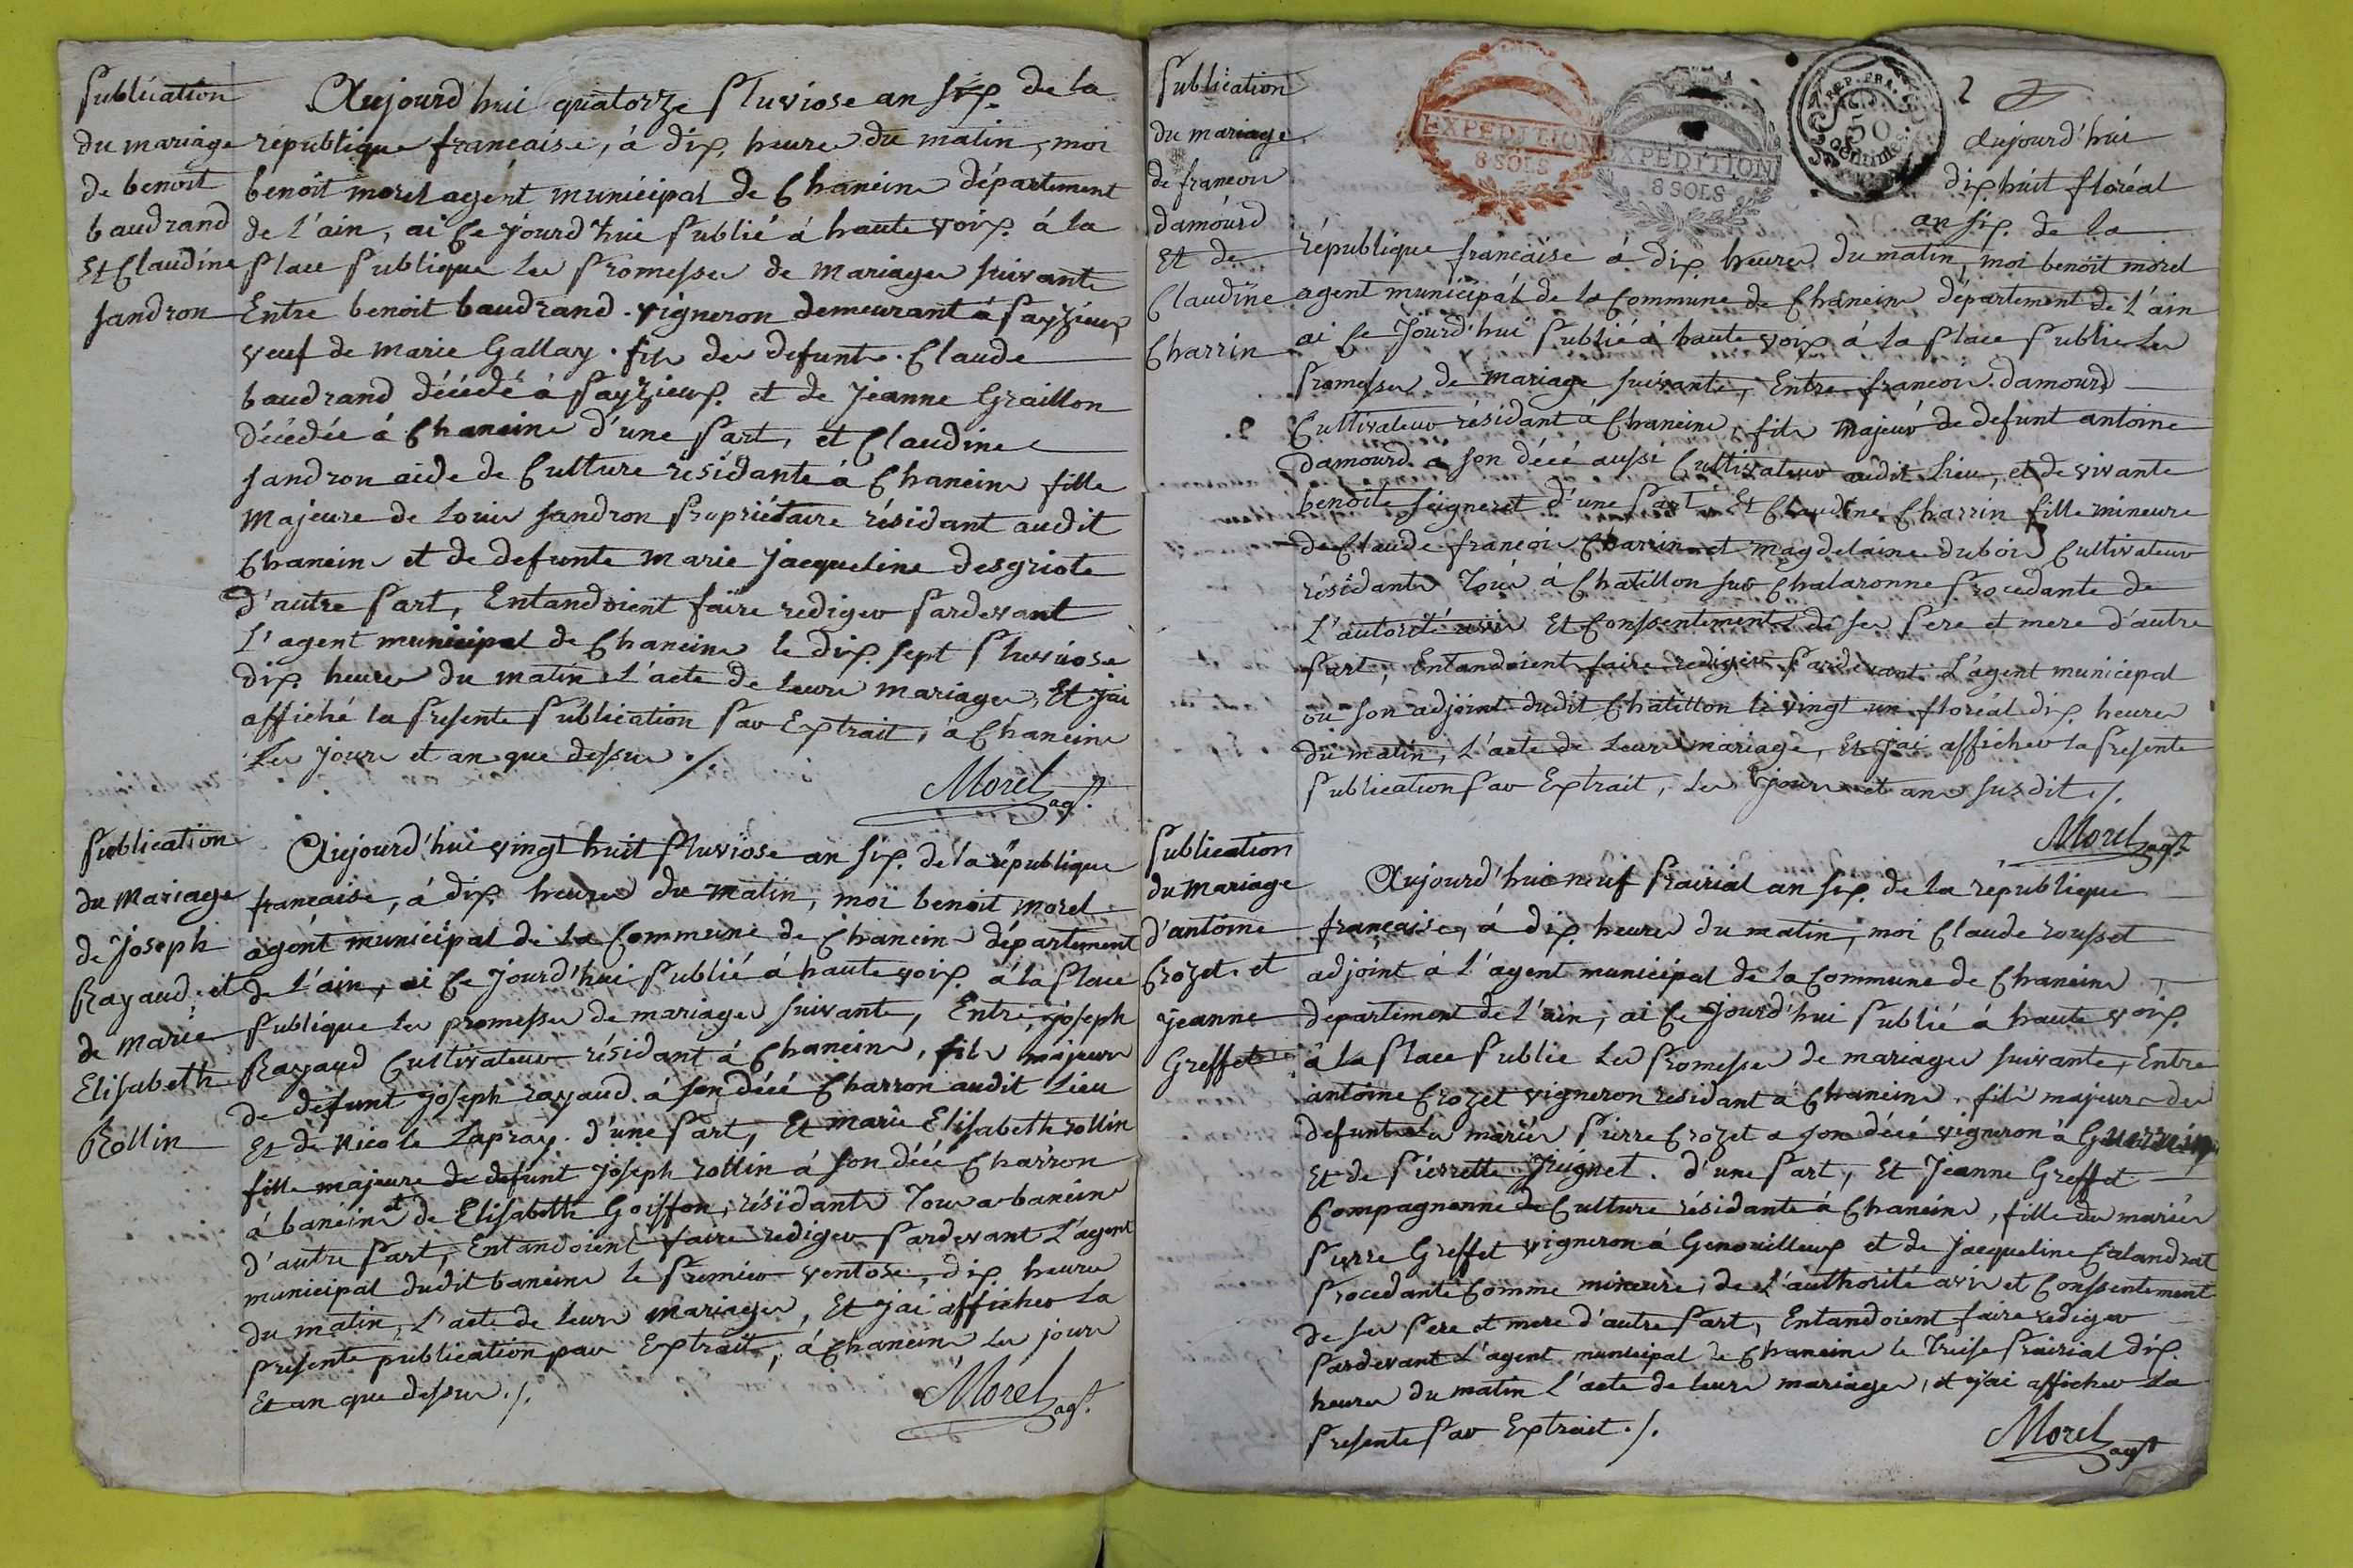 Publication
du mariage
de benoit
baudrand
Et Claudine
Sandron
Aujourd'hui quatorze Pluviose an Six de la
république francaise, à dix heures du matin, moi
benoit morel agent municipal de Chaneins département
de l'ain, ai Ce jourd'hui Publié à haute voix à la
Place Publique les Promesses de mariages suivante
Entre benoit baudrand vigneron demeurant à Payzieux
veuf de marie Gallay fils des defunts Claude
baudrand décédé à Payzieux et de Jeanne Graillon
décédée à Chaneins d'une Part, et Claudine
Sandron aide de Culture résidante à Chaneins fille
Majeure de Louis Sandron Propriétaire résidant audit
Chaneins et de defunte marie Jacqueline desgriote
d'autre Part, Entandoient faire rediger Pardevant
L'agent municipal de Chaneins le dix sept Pluviose
dix heures du matin L'acte de leurs mariages, Et j'ai
affiché la Presente Publication Par Extrait, à Chaneins
Les jours et an que dessus ./.
Morel agt
Publication
du Mariage
de Joseph
Rayaud et
de marie
Elisabeth
Rollin
Aujourd'hui vingt huit Pluviose an Six de la république
francaise, à dix heures du matin, moi benoit morel
agent municipal de la Commune de Chaneins département
de L'ain, ai Ce jourd'hui Publié à haute voix à la Place
Publique les promesses de mariages suivante, Entre joseph
Rayaud Cultivateur résidant à Chaneins, fils majeur
de defunt joseph rayaud à son décé Charron audit Lieu
Et de Nicole Lapray d'une Part, Et marie Elisabeth rollin
fille majeure de defunt joseph rollin à son décé Charron
à baneins et de Elisabeth Goiffon, résidants Tous a baneins
d'autre Part, Entandoient faire rediger Pardevant L'agent
municipal dudit baneins le Premier ventose, dix heures
du matin, L'acte de leurs mariages, Et j'ai afficher la
presente publication par Extrait, à Chaneins Les jours
Et an que dessus ./.
Morel agt
Publication
du mariage
de francois
damourd
Et de
Claudine
Charrin
EXPEDITION
8 SOLS
EXPEDITION
8 SOLS
REP. FRA.
50
Centimes
2
Aujourd'hui
dix huit floréal
an six de la
république francaise à dix heures du matin, moi benoit morel
agent municipal de la Commune de Chaneins département de L'ain
ai Ce Jourd'hui Publié à haute voix à la Place Public les
Promesses de mariage suivante, Entre francois damourd
Cultivateur résidant à Chaneins, fils majeur de defunt antoine
damourd à son décé aussi Cultivateur audit Lieu, et de vivante
benoite Seigneret d'une Part, Et Claudine Charrin fille mineure
de Claude francois Charrin et magdelaine dubois Cultivateur
résidants Tous à Chatillon sur Chalaronne Procedante de
L'autorité avis Et Conssentements de ses Pere et mere d'autre
Part, Entandoient faire rediger Pardevant L'agent municipal
ou son adjoint dudit Chatillon le vingt un floréal dix heures
du matin, L'acte de Leurs mariage, Et j'ai afficher la Presente
Publication Par Extrait, Les jours et ans susdit ./.
Morel agt
Publication
du Mariage
d'antoine
Crozet et
Jeanne
Greffet
Aujourd'hui neuf Prairial an Six de la république
française, à dix heures du matin, moi Claude rousset
adjoint à l'agent municipal de la Commune de Chaneins,
departement de L'ain, ai Ce Jourd'hui Publié à haute voix
à la Place Public les Promesses de mariages suivante, Entre
antoine Crozet vigneron residant à Chaneins, fils majeur des
defunts les mariés Pierre Crozet a son décé vigneron à Guerreins
Et de Pierrette d'une Part, Et Jeanne Greffet
Compagnonne de Culture résidante à Chaneins, fille des mariés
Pierre Greffet vigneron à Genouilleux et de Jacqueline Calandrat
Procedante Comme mineure, de L'authorité avis et Conssentement
de ses Pere et mere d'autre Part, Entandoient faire rediger
Pardevant L'agent municipal de Chaneins le Treise Prairial dix
heures du matin L'acte de leurs mariages, et j'ai afficher La
Presente Par Extrait ./.
Morel agt